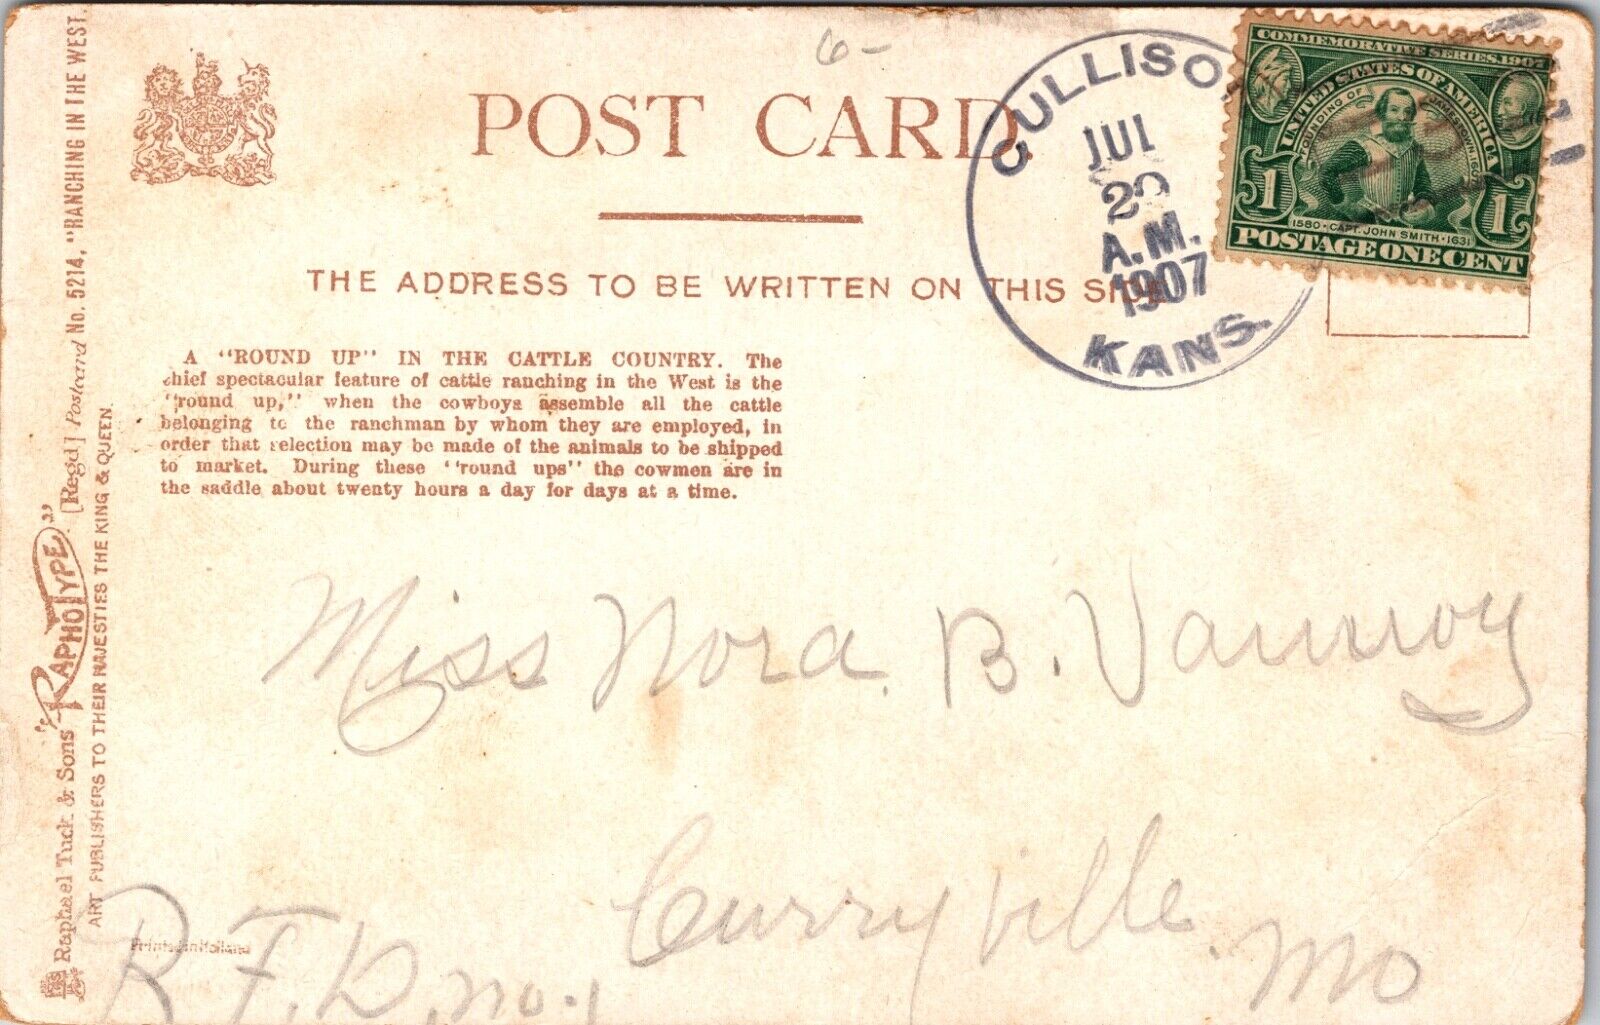 6-
POST CARD.
THE ADDRESS TO BE WRITTEN ON THIS SIDE
CULLISO
JUL
A.M.
1907
KANS.
COMMEMORATIVE SERIES 1907
UNITED STATES OF AMERICA
FOUNDING OF JAMESTOWN 1607
1 1
1580 · CAPT. JOHN SMITH · 1631
POSTAGE ONE CENT
A "ROUND UP" IN THE CATTLE COUNTRY. The
chief spectacular feature of cattle ranching in the West is the
"round up," when the cowboys assemble all the cattle
belonging to the ranchman by whom they are employed, in
order that selection may be made of the animals to be shipped
to market. During these "round ups" the cowmen are in
the saddle about twenty hours a day for days at a time.
Miss Nora B. Vannoy
Curryville
Mo
R.F.D. no. 1
Printed in Holland
Raphael Tuck & Sons "RAPHOTYPE" [Regd] Postcard No. 5214, "RANCHING IN THE WEST.
ART PUBLISHERS TO THEIR MAJESTIES THE KING & QUEEN.